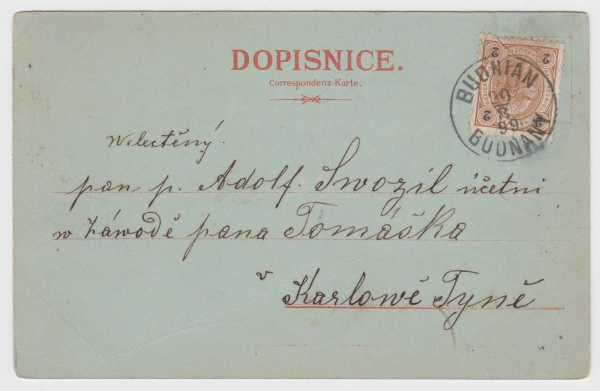 DOPISNICE.
Correspondenz-Karte.
2 2
BUDNIAN
99
BUDŇANY
2 2
Welectěný
pan p. Adolf. Swozil účetni
w Záwodě pana Tomáška
v
Karlowě Týně